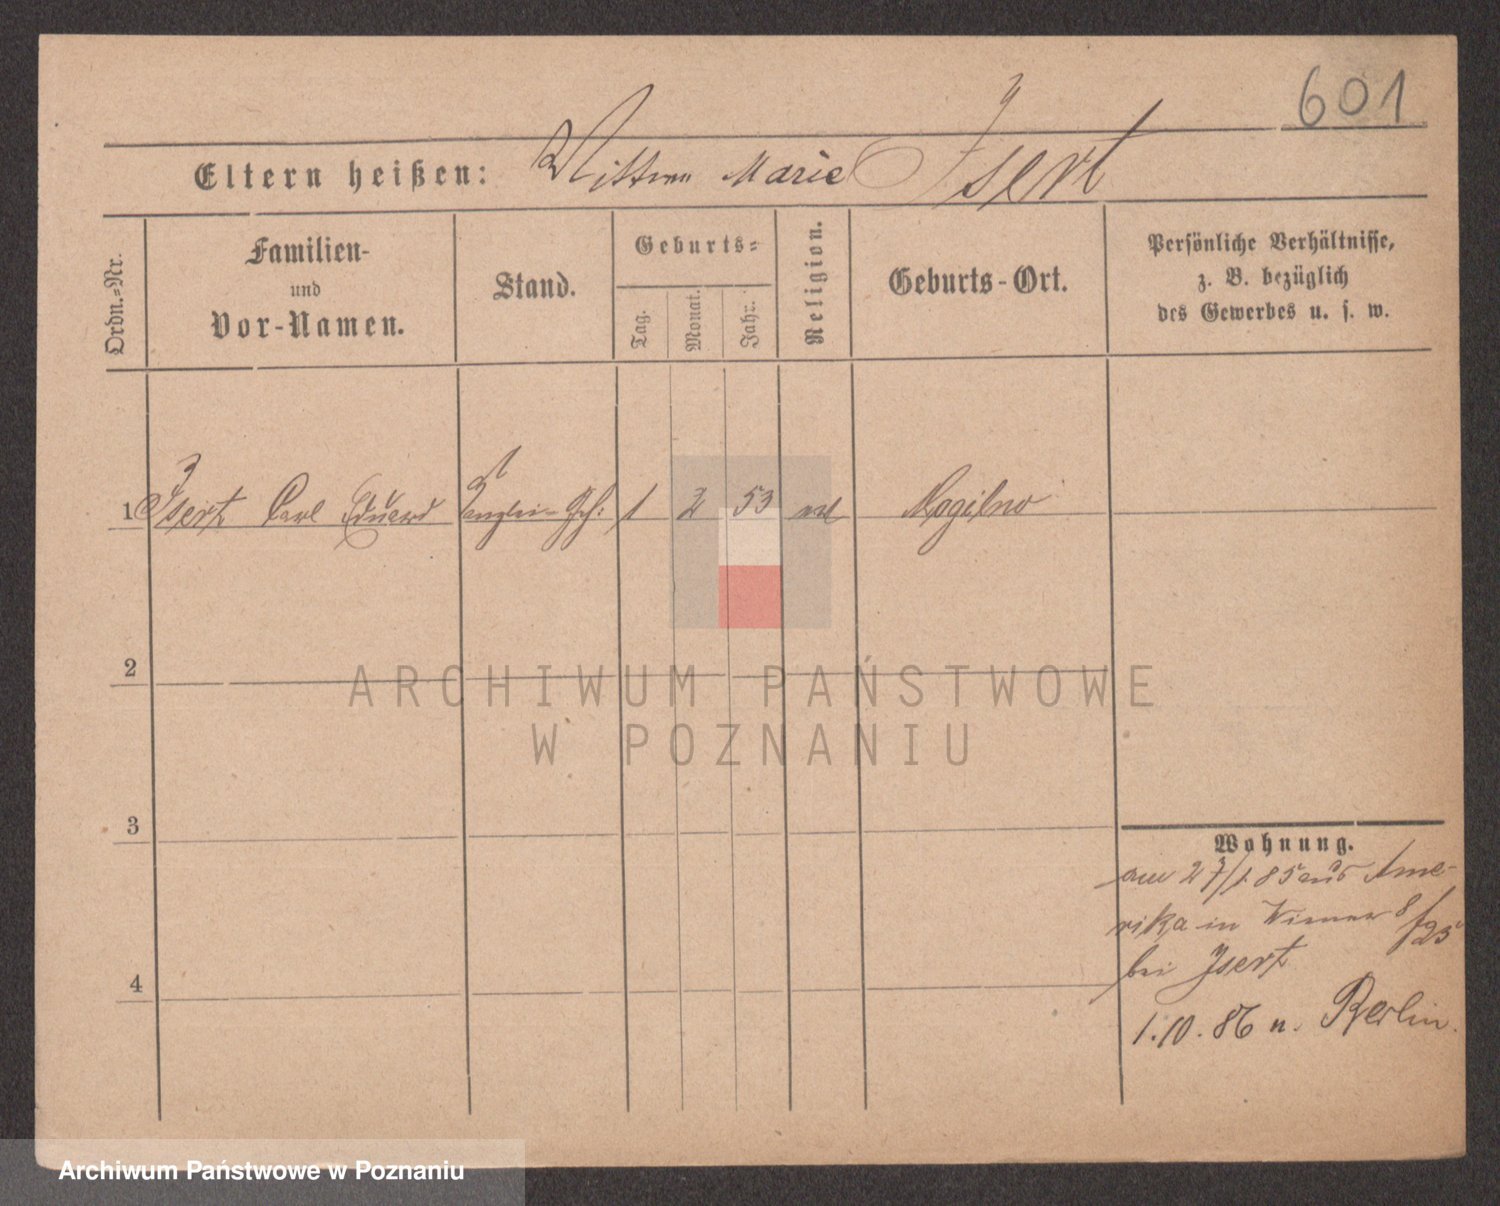 601
Eltern heißen: Wittwe Marie Isert
Ordn.-Nr.
Familien-
und
Vor-Namen.
Stand.
Geburts-
Tag.
Monat.
Jahr.
Religion.
Geburts-Ort.
Persönliche Verhältnisse,
z. B. bezüglich
des Gewerbes u. s. w.
1 Isert Carl Eduard Kanzlei-Geh: 1 2 53 evl Mogilno
2
3
4
Wohnung.
am 27/1 85 aus Ame-
rika in 8/25
bei Isert
1.10.86 n. Berlin.
ARCHIWUM PAŃSTWOWE
W POZNANIU
Archiwum Państwowe w Poznaniu